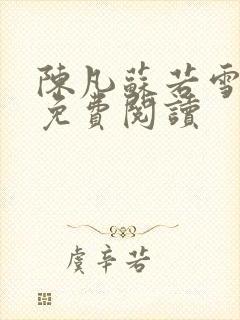 陳凡蘇若雪
免費閱讀
虞辛若